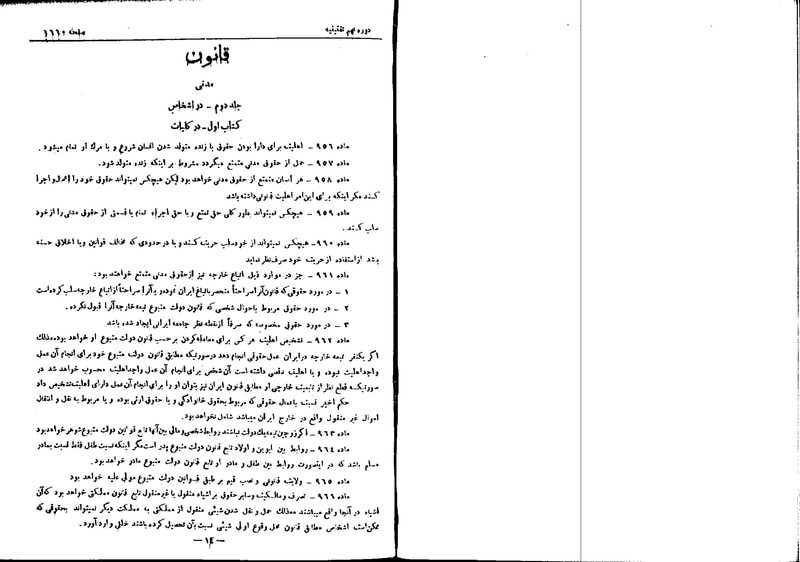 دوره نهم تقنینیه
صفحه ۱۶۶۰
قانون
مدنی
جلد دوم - در اشخاص
کتاب اول - در کلیات
ماده ۹۵۶ - اهلیت برای دارا بودن حقوق با زنده متولد شدن انسان شروع و با مرگ او تمام میشود .
ماده ۹۵۷ - حمل از حقوق مدنی متمتع میگردد مشروط بر اینکه زنده متولد شود.
ماده ۹۵۸ - هر انسان متمتع از حقوق مدنی خواهد بود لیکن هیچکس نمیتواند حقوق خود را اعمال و اجرا
کند مگر اینکه برای این امر اهلیت قانونی داشته باشد
ماده ۹۵۹ - هیچکس نمیتواند بطور کلی حق تمتع و یا حق اجراء تمام یا قسمتی از حقوق مدنی را از خود
سلب کند .
ماده ۹۶۰ - هیچکس نمیتواند از خود سلب حریت کند و یا در حدودی که مخالف قوانین و یا اخلاق حسنه
باشد از استفاده از حریت خود صرف نظر نماید
ماده ۹۶۱ - جز در موارد ذیل اتباع خارجه نیز از حقوق مدنی متمتع خواهند بود :
۱ - در مورد حقوقی که قانون آنرا صراحتاً منحصر باتباع ایران نموده و یا آنرا صراحتاً از اتباع خارجه سلب کرده است
۲ - در مورد حقوق مربوط باحوال شخصی که قانون دولت متبوع تبعه خارجه آنرا قبول نکرده .
۳ - در مورد حقوق مخصوصه که صرفاً از نقطه نظر جامعه ایرانی ایجاد شده باشد
ماده ۹۶۲ - تشخیص اهلیت هر کس برای معامله کردن بر حسب قانون دولت متبوع او خواهد بود معذلک
اگر یکنفر تبعه خارجه در ایران عمل حقوقی انجام دهد در صورتیکه مطابق قانون دولت متبوع خود برای انجام آن عمل
واجد اهلیت نبوده و یا اهلیت ناقصی داشته است آن شخص برای انجام آن عمل واجد اهلیت محسوب خواهد شد در
صورتیکه قطع نظر از تابعیت خارجی او مطابق قانون ایران نیز بتوان او را برای انجام آن عمل دارای اهلیت تشخیص داد
حکم اخیر نسبت باعمال حقوقی که مربوط بحقوق خانوادگی و یا حقوق ارثی بوده و یا مربوط به نقل و انتقال
اموال غیر منقول واقع در خارج ایران میباشد شامل نخواهد بود.
ماده ۹۶۳ - اگر زوجین تبعه یک دولت نباشند روابط شخصی و مالی بین آنها تابع قوانین دولت متبوع شوهر خواهد بود
ماده ۹۶۴ - روابط بین ابوین و اولاد تابع قانون دولت متبوع پدر است مگر اینکه نسبت طفل فقط نسبت بمادر
مسلم باشد که در اینصورت روابط بین طفل و مادر او تابع قانون دولت متبوع مادر خواهد بود.
ماده ۹۶۵ - ولایت قانونی و نصب قیم بر طبق قوانین دولت متبوع مولی علیه خواهد بود
ماده ۹۶۶ - تصرف و مالکیت و سایر حقوق بر اشیاء منقول یا غیر منقول تابع قانون مملکتی خواهد بود که آن
اشیاء در آنجا واقع میباشند معذلک حمل و نقل شدن شیئی منقول از مملکتی به مملکت دیگر نمیتواند بحقوقی که
ممکن است اشخاص مطابق قانون محل وقوع اولی شیئی نسبت بآن تحصیل کرده باشند خللی وارد آورد.
- ۱۴ -